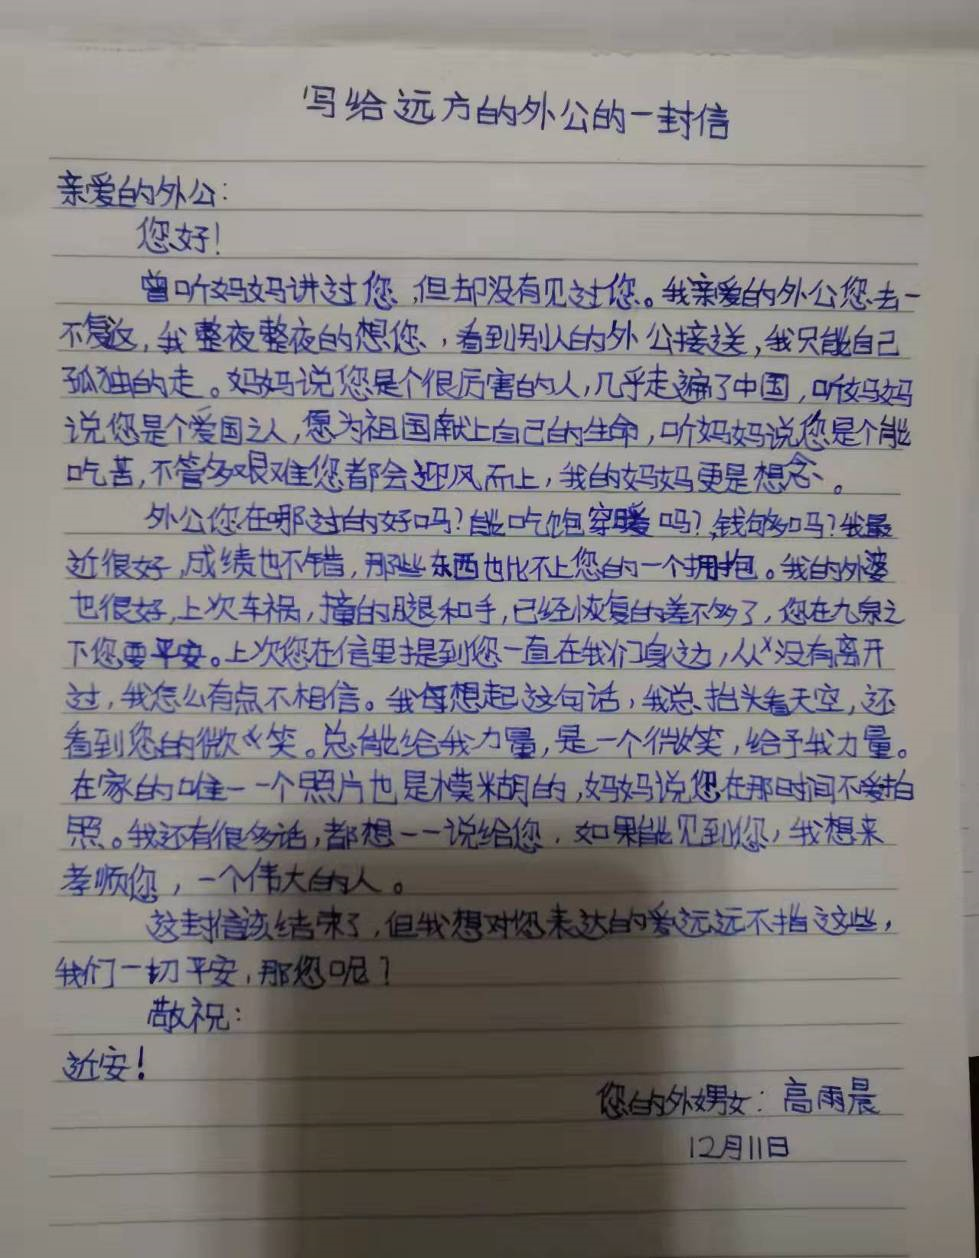 写给远方的外公的一封信
亲爱的外公：
您好！
曾听妈妈讲过您，但却没有见过您。我亲爱的外公您去一
不复返，我整夜整夜的想您、，看到别人的外公接送，我只能自己
孤独的走。妈妈说您是个很厉害的人，几乎走遍了中国，听妈妈
说您是个爱国之人，愿为祖国献上自己的生命，听妈妈说您是个能
吃苦，不管多艰难您都会迎风而上，我的妈妈更是想念、。
外公您在哪过的好吗？能吃饱穿暖吗？，钱够吗？我最
近很好，成绩也不错，那些东西也比不上您的一个拥抱。我的外婆
也很好，上次车祸，撞的腿和手，已经恢复的差不多了，您在九泉之
下您要平安。上次您在信里提到您一直在我们身边，从没有离开
过，我怎么有点不相信。我每想起这句话，我总、抬头看天空，还
看到您的微笑。总能给我力量，是一个微笑，给予我力量。
在家的唯一一个照片也是模糊的，妈妈说您在那时间不爱拍
照。我还有很多话，都想一一说给您，如果能见到您，我想来
孝顺您，一个伟大的人。
这封信该结束了，但我想对您表达的爱远远不指这些，
我们一切平安，那您呢？
敬祝：
近安！
您的外甥女：高雨晨
12月11日